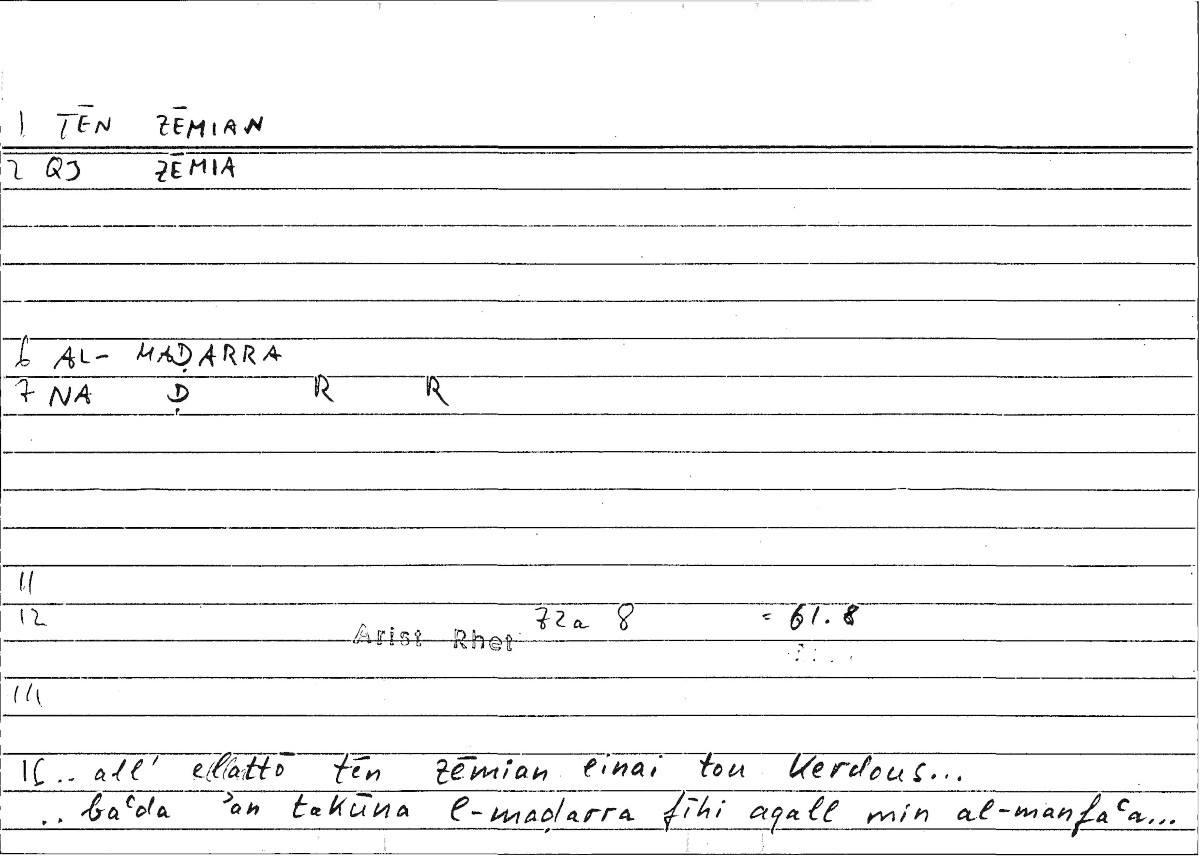 1 TĒN ZĒMIAN
2 QJ ZĒMIA
6 AL- MAḌARRA
7 NA Ḍ R R
11
12 72a 8 = 61.8
Arist Rhet
14
15.. all' elattō tēn zēmian einai tou kerdous...
.. baʿda ʾan takūna l-maḍarra fīhi aqall min al-manfaʿa...